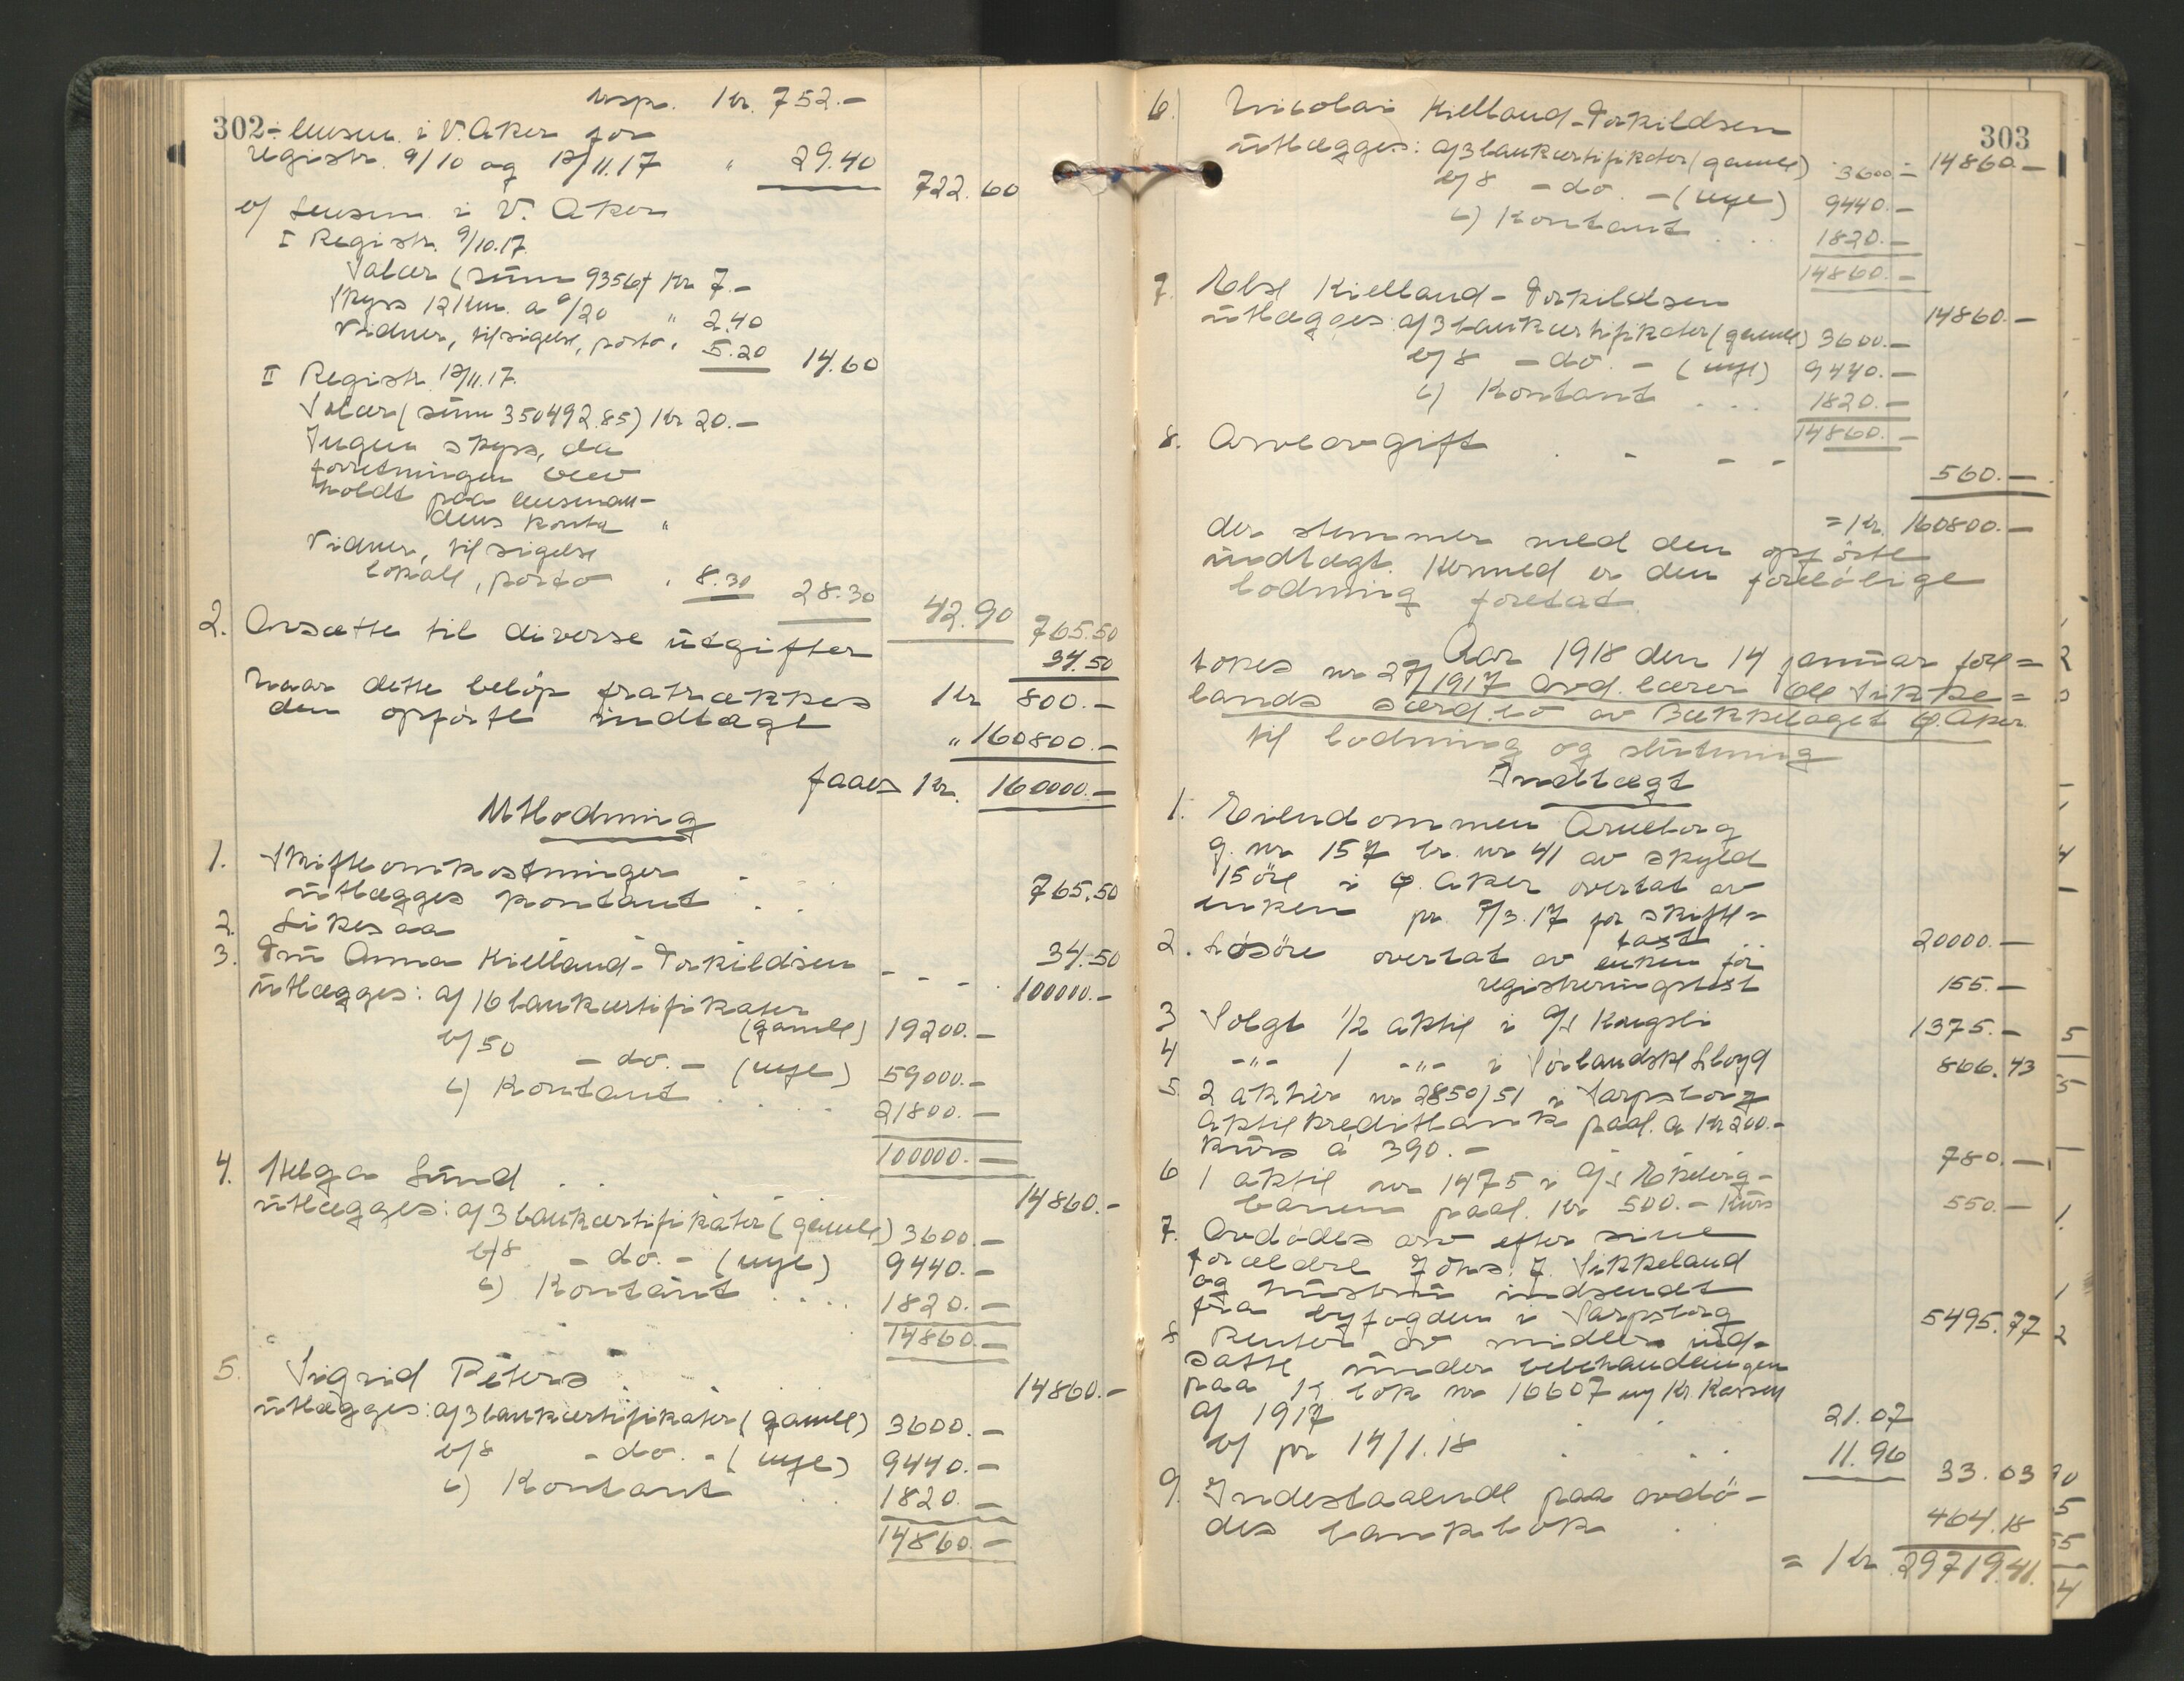 302
trsp. Kr. 752.-
÷ lensm. i V. Aker for
registr. 9/10 og 12/11.17 " 29.40
722.60
b/ Lensm. i V. Aker
I Registr. 9/10.17.
Salær (sum 9356) Kr 7.-
Skyss 12 km. a 0/20 " 2.40
Vidner, tilsigelse, porto " 5.20 14.60
II Registr. 12/11.17.
Salær (sum 350492.85) Kr 20.-
Ingen skyss, da
forretningen blev
holdt paa lensman-
dens kontor "
Vidner, tilsigelse
lokale, porto " 8.30 28.30
42.90 765.50
2. Avsættes til diverse utgifter 34.50
Kr 800.-
Naar dette beløp fratrækkes
den opførte indtægt " 160800.-
faaes Kr. 160000.-
Utlodning
1. Skifteomkostninger
utlægges kontant . . 765.50
2. Likesaa 34.50
3. Fru Anna Kielland-Torkildsen - - . 100000.-
utlægges: a/ 16 bankcertifikater
(gamle) 19200.-
b/ 50 - do. - (nye) 59000.-
c) Kontant . . . . 21800.-
100000.-
4. Helga Lund . . 14860.-
utlægges: a/ 3 bankcertifikater (gamle) 3600.-
b/ 8 - do. - (nye) 9440.-
c) Kontant . . . . 1820.-
14860.-
5. Sigrid Peters . . . 14860.-
utlægges: a/ 3 bankcertifikater (gamle) 3600.-
b/ 8 - do. - (nye) 9440.-
c) Kontant . . 1820.-
14860.-
303
6. Nicolai Kielland-Torkildsen 14860.-
utlægges: a/ 3 bankcertifikater (gamle) 3600.-
b/ 8 - do. - (nye) 9440.-
c) Kontant . . . 1820.-
14860.-
7. Else Kielland-Torkildsen 14860.-
utlægges: a/ 3 bankcertifikater (gamle) 3600.-
b/ 8 - do. - (nye) 9440.-
c) Kontant . . . 1820.-
14860.-
8. Arveavgift . - - - 560.-
= Kr. 160800.-
der stemmer med den opførte
indtægt. Hermed er den foreløbige
lodning foretat
Aar 1918 den 14 januar fore=
tokes nr 27/1917 Avd. lærer Ole Sikke=
lands særd.bo av Bækkelaget Ø. Aker
til lodning og slutning
Indtægt
1. Eiendommen Arneborg
g. nr 157 br. nr 41 av skyld
15 øre i Ø. Aker overtat av
enken pr. 7/3.17 for skifte=
takst 20000.-
2. Løsøre overtat av enken for
registreringstakst 155.-
3 Solgt 1/2 aktie i A/S Kragsli 1375.-
4 -"- 1 -"- i Sørlandske Lloyd 866.43
5. 2 aktier nr 2850/51 i Sarpsborg
Aktiekreditbank paal. a Kr 200.-
kurs á 390.- 780.-
6 1 aktie nr 1475 i A/S Ekeberg-
banen paal. Kr 500.- kurs 550.-
7. Avdødes arv efter sine
forældre Johs. J. Sikkeland
og hustru indsendt
fra byfogden i Sarpsborg 5495.77
8 Renter av midler ind-
satte under bobehandlingen
paa K. bok nr 16607 ny Kr Kassen
a/ 1917 . . 21.07
b/ pr 14/1.18 . . . 11.96
33.03
9. Indestaaende paa avdø-
des bankbok . 464.18
= Kr 29719.41.